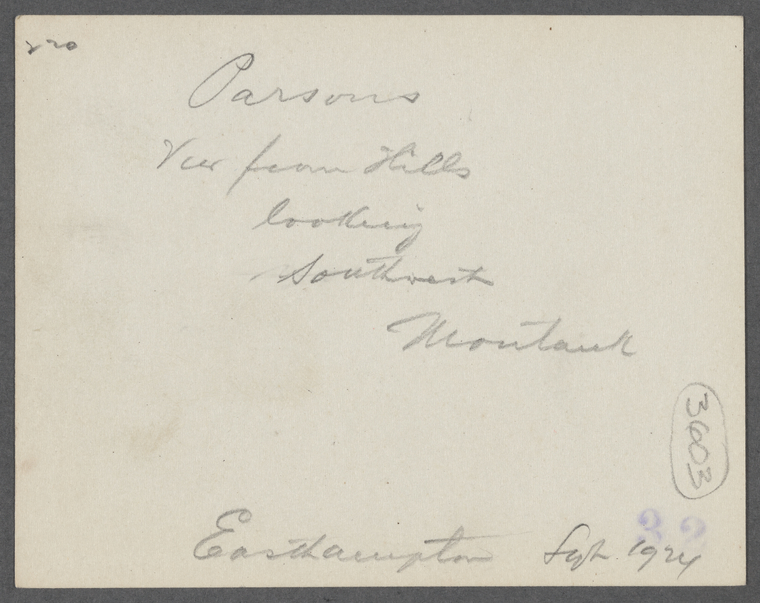 Parsons
View from Hills
looking
Southwest
Montauk
3603
Easthampton Sept. 1924
32